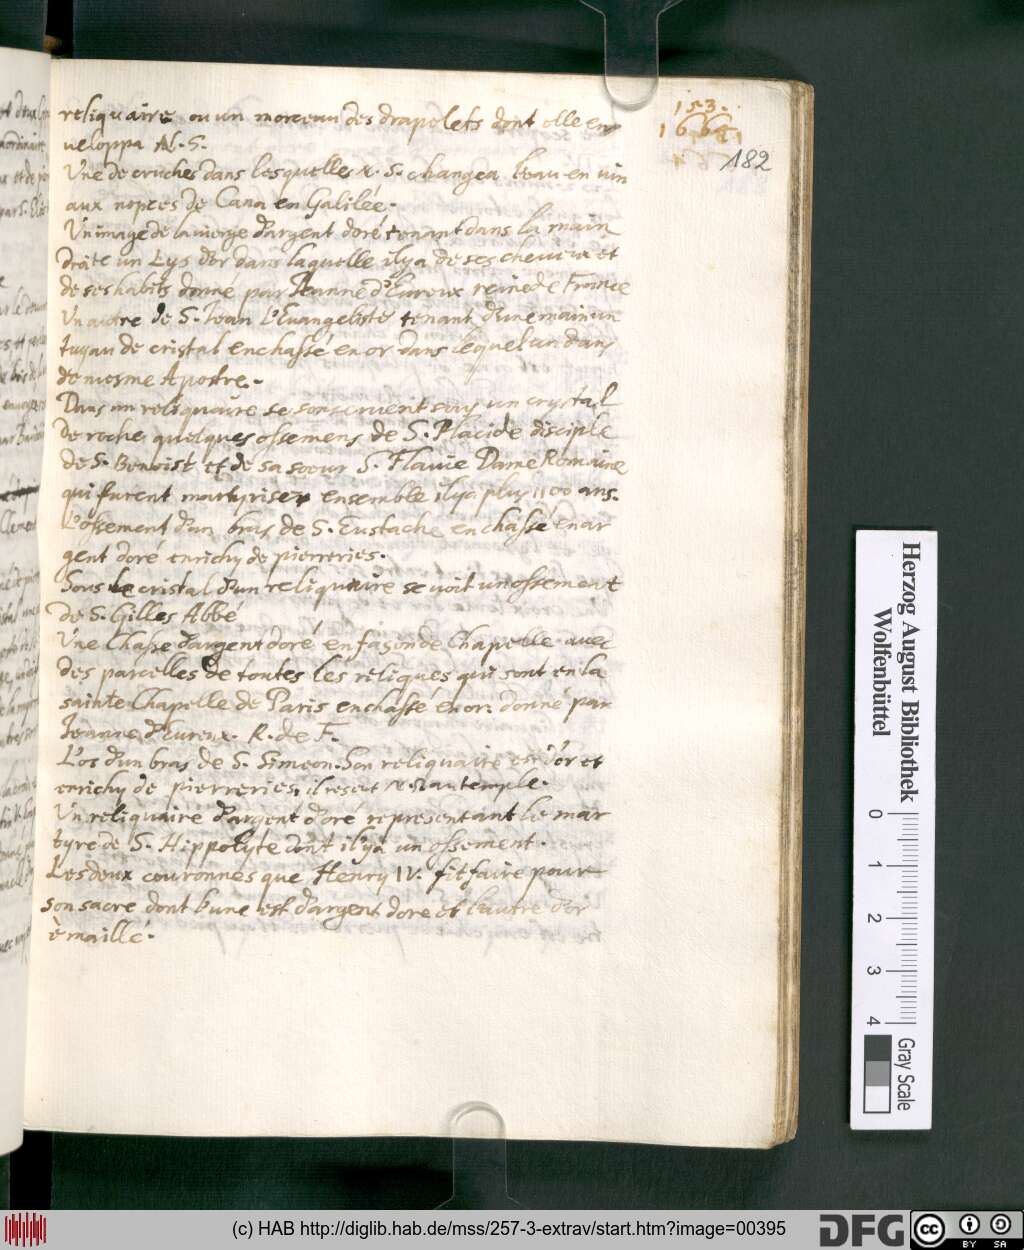 153.
1664
182
reliquaire ou un morceau des drapelets dont elle en
veloppa N. S.
Une de cruches dans lesquelles N. S. changea l'eau en vin
aux nopces de Cana en Galilée.
Un image de la vierge d'argent doré tenant dans la main
droite un Lys d'or dans laquelle il y a de ses cheveux et
de ses habits donné par Jeanne d'Eureux reine de France
Un autre de S. Jean L'Evangeliste tenant d'une main un
tuyau de cristal enchassé en or dans lequel un dans
de mesme Apostre.
Dans un reliquaire se conservent sous un crystal
de roche quelques ossemens de S. Placide disciple
de S. Benoist et de sa soeur S. Flavie Dame Romaine
qui furent martyrisez ensemble il y a plus 1100 ans.
L'ossement d'un bras de S. Eustache enchassé en ar
gent doré enrichy de pierreries.
Sous le cristal d'un reliquaire se voit un ossement
de S. Gilles Abbé
Une Chasse d'argent doré en façon de Chapelle avec
des parcelles de toutes les réliques qui sont en la
sainte Chapelle de Paris enchassé en or. donné par
Jeanne d'Eureux. R. de F.
L'os d'un bras de S. Simeon. Son reliquaire est d'or et
enrichy de pierreries, il receut N. S. au temple.
Un reliquaire d'argent doré representant le mar
tyre de S. Hippolyte dont il y a un ossement.
Les deux couronnes que Henry IV. fit faire pour
son sacre dont l'une est d'argent doré et l'autre d'or
èmaillé.
Herzog August Bibliothek
Wolfenbüttel
0 1 2 3 4
Gray Scale
(c) HAB http://diglib.hab.de/mss/257-3-extrav/start.htm?image=00395
DFG
cc BY SA